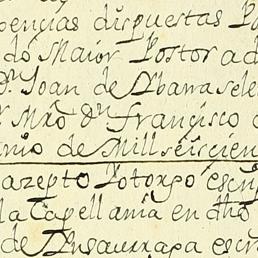 pencias dispuestas Po
do Maior Postor ad
Dn. Joan de Abarrasele
Mro Dn. francisco
nio de Mill seiscien
azepto Y otorgo escri
la Capellania en dho
de Ansaurraga escri